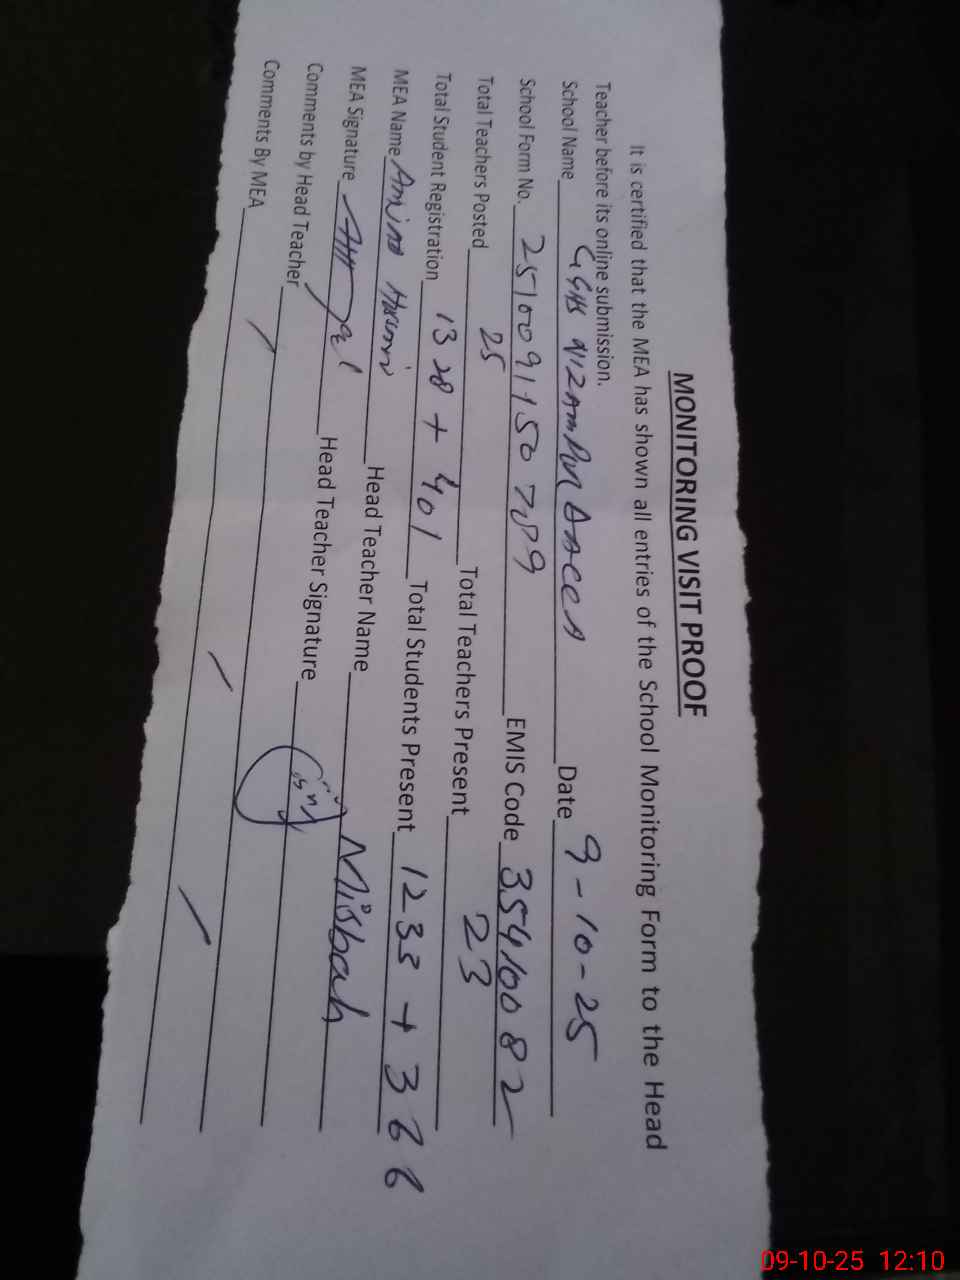 MONITORING VISIT PROOF
It is certified that the MEA has shown all entries of the School Monitoring Form to the Head
Teacher before its online submission.
School Name GGHS NIZAMPUR Date 9-10-25
School Form No. 2510091150789 EMIS Code 35410082
Total Teachers Posted 25 Total Teachers Present 23
Total Student Registration 1328 + 401 Total Students Present 1233 + 366
MEA Name Head Teacher Name Misbah
MEA Signature Head Teacher Signature
Comments by Head Teacher
Comments By MEA
09-10-25 12:10